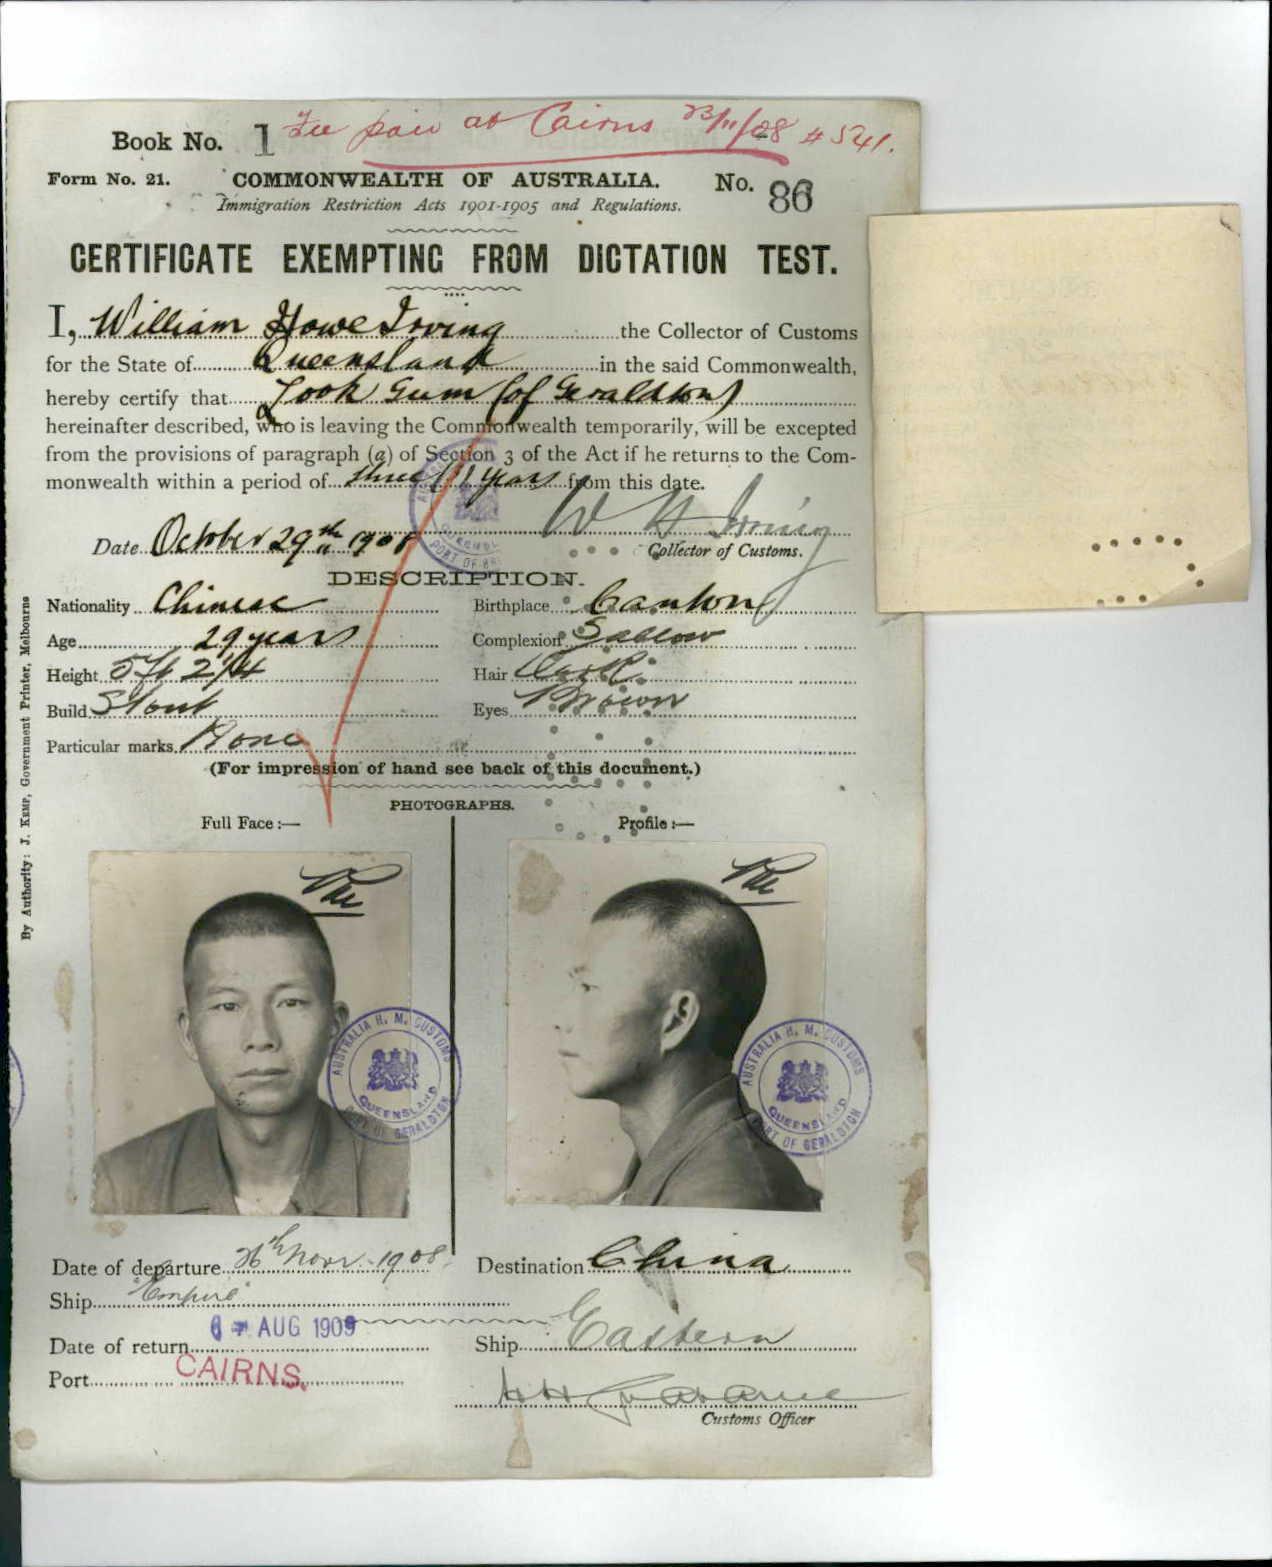 Fee paid at Cairns 23/11/08 # 541.
Book No. 1
Form No. 21. COMMONWEALTH OF AUSTRALIA. No. 86
Immigration Restriction Acts 1901-1905 and Regulations.
CERTIFICATE EXEMPTING FROM DICTATION TEST.
I, William Howe Irving the Collector of Customs
for the State of Queensland in the said Commonwealth,
hereby certify that Look Gum (of Geraldton)
hereinafter described, who is leaving the Commonwealth temporarily, will be excepted
from the provisions of paragraph (a) of Section 3 of the Act if he returns to the Com-
monwealth within a period of three years from this date.
W H Irving
Date October 29th 1908 Collector of Customs.
DESCRIPTION.
Nationality Chinese Birthplace Canton
Age 29 years Complexion Sallow
Height 5ft 2 1/4 Hair Dark
Build Stout Eyes Brown
Particular marks None
(For impression of hand see back of this document.)
PHOTOGRAPHS.
Full Face:— Profile:—
AUSTRALIA H. M. CUSTOMS QUEENSLAND PORT OF GERALDTON
AUSTRALIA H. M. CUSTOMS QUEENSLAND PORT OF GERALDTON
Date of departure 26th Novr. 1908. Destination China
Ship "Empire"
Date of return AUG 1909 Ship Eastern
Port CAIRNS.
Customs Officer
By Authority: J. KEMP, Government Printer, Melbourne